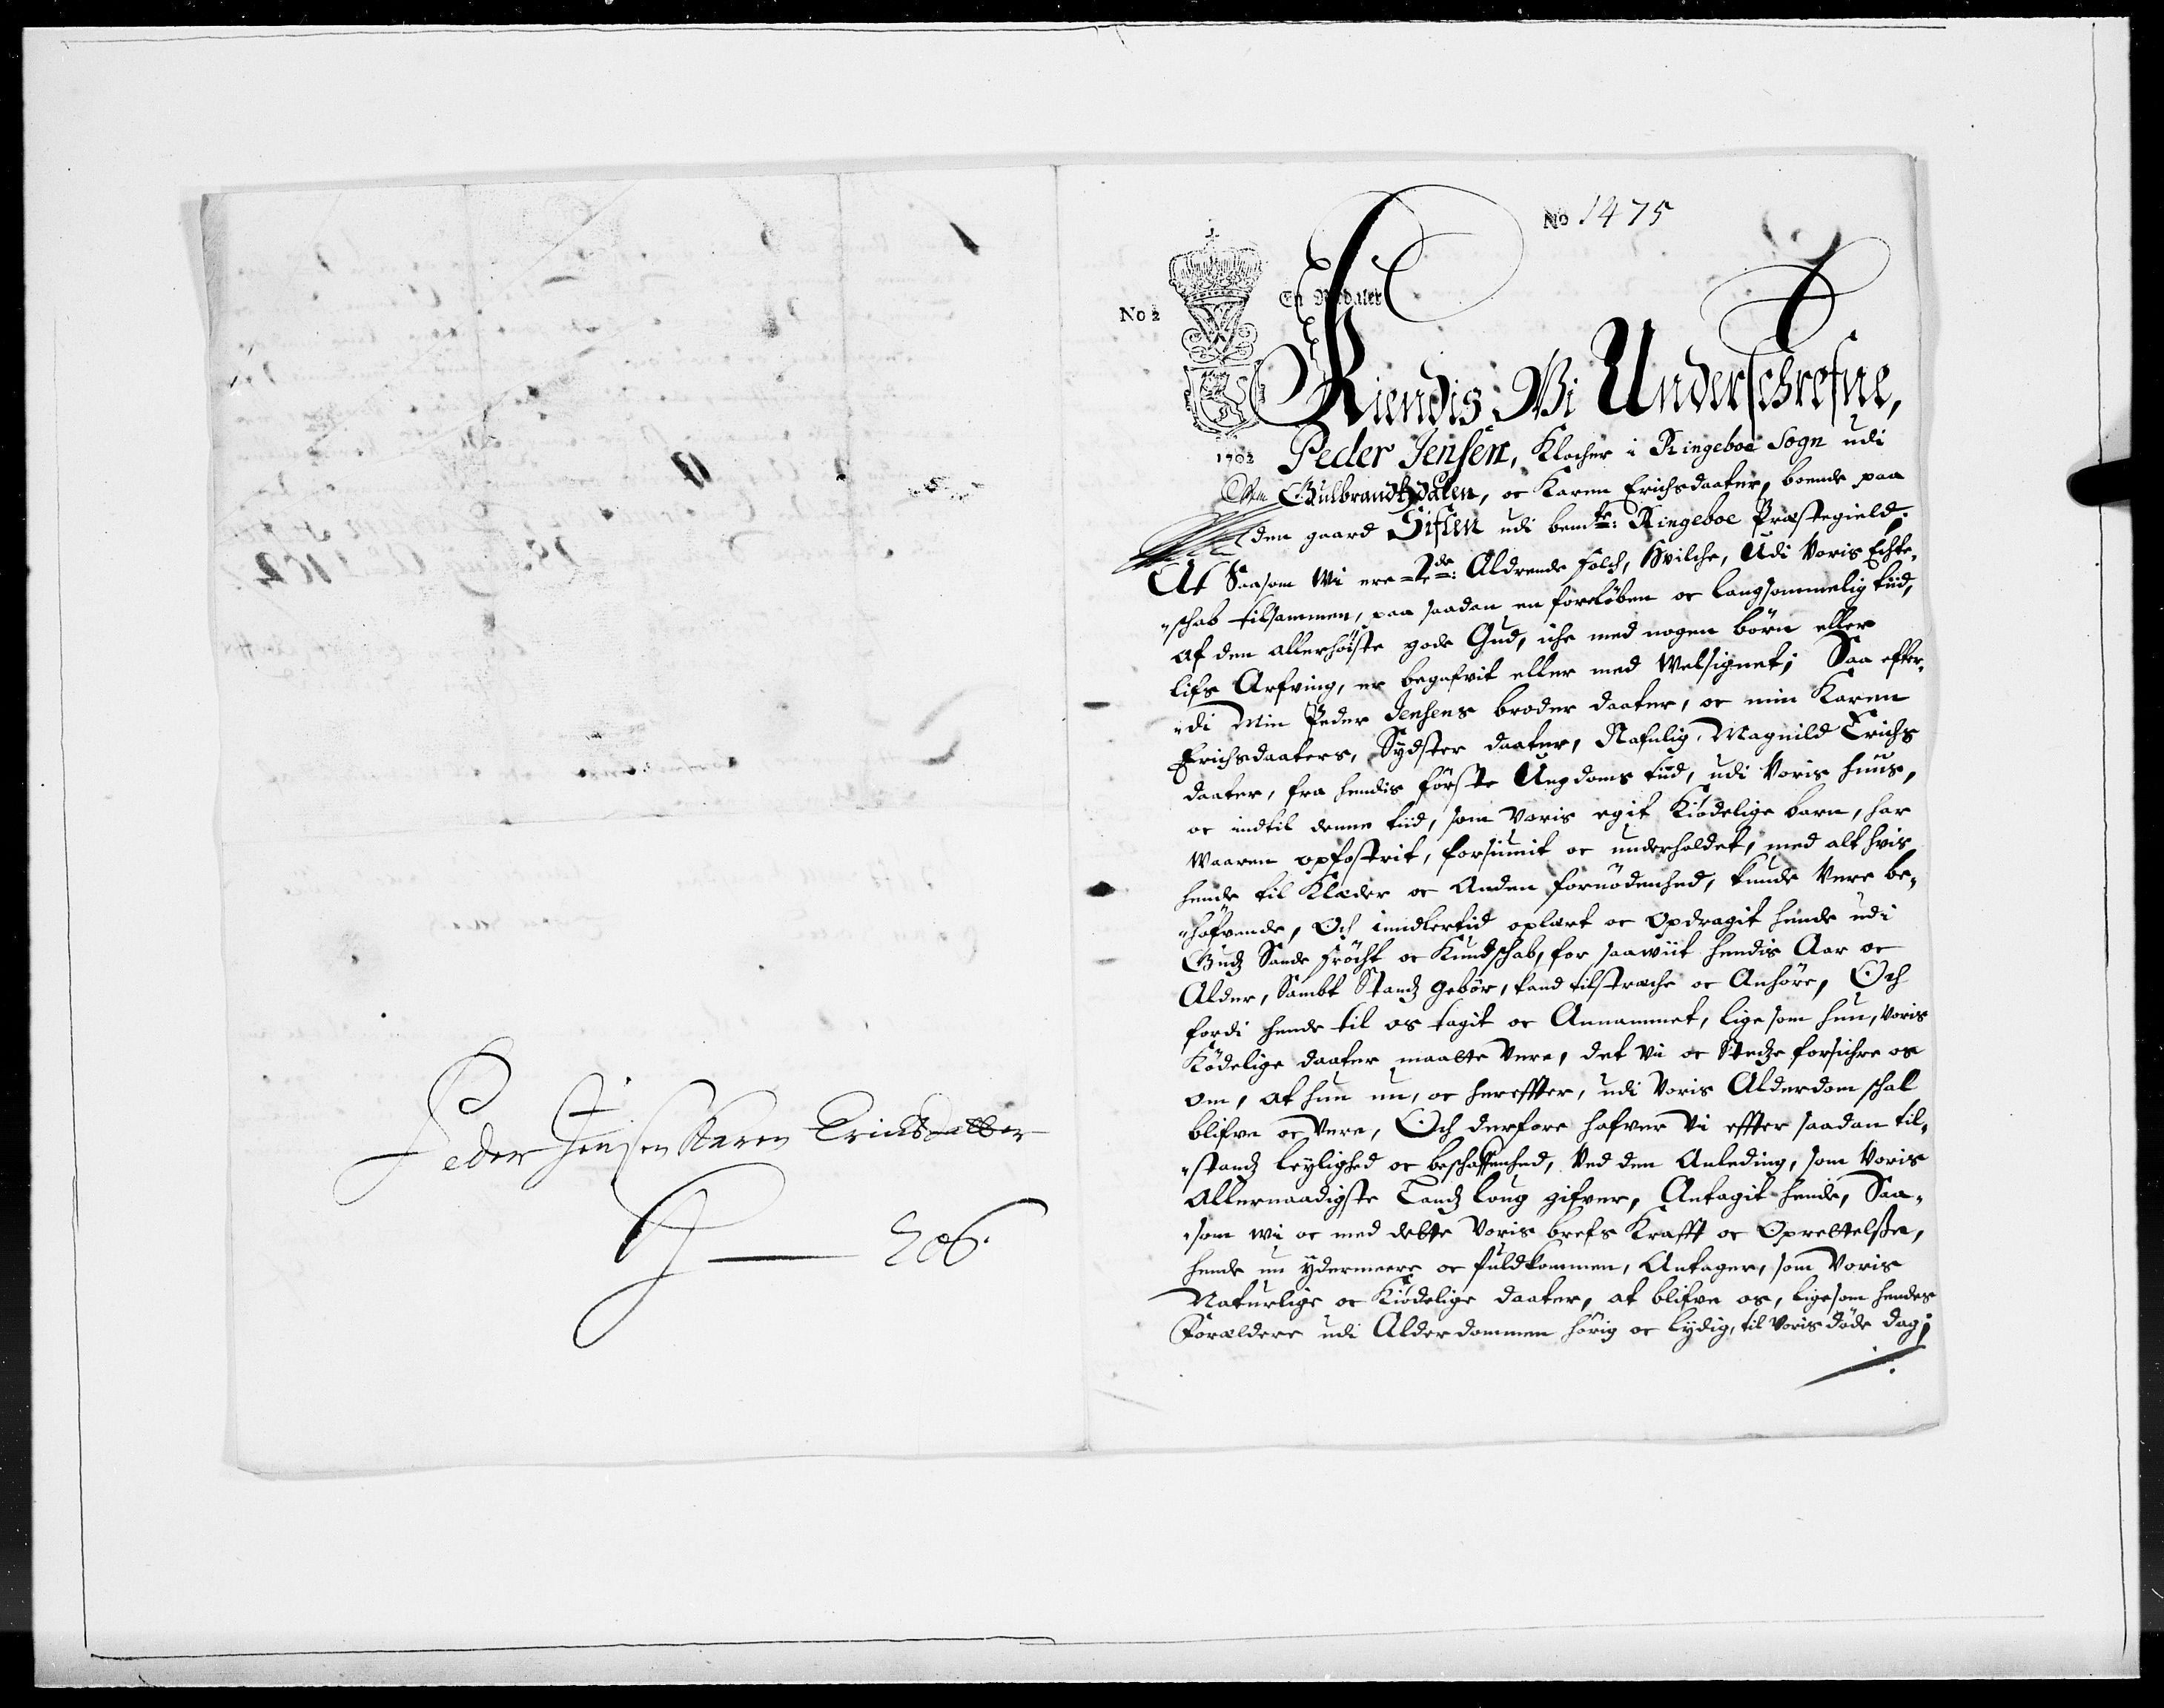 Peder Jensen Karen Erichsdatter
206.
No 1475
No 2
En Rixdaler
Kiendis Wi Underschrefne,
1702 Peder Jensen, Klocher i Ringeboe Sogn udi
Gulbrandtzdalen, oc Karen Erichsdaater, boende paa
den gaard Siflen udi bemte: Ringeboe Præstegield.
At Saasom Wi ere Aldrende folch, Hvilche, Udi Voris Echte„
„schab tilsammen, paa saadan en forløben oc langsommelig tiid,
af den allerhøiste gode Gud, iche med nogen børn eller
lifs Arfving, er begafvit eller med Welsignet; Saa efter„
„di Min Peder Jensens broder daater, oc min Karen
Erichsdaaters, Sydster daater, Nafnlig, Magnild Erichs
daater, fra hendis første Ungdoms tiid, udi Voris huus,
oc indtil denne tiid, som Voris egit Kiødelige barn, har
Waaren opfostrit, forsiunit oc underholdet, med alt hvis
hende til Klæder oc Anden fornødenhed, kunde Vere be„
„høfvende, Och imidlertid oplært oc Opdragit hende udi
Gudz Sande frøcht oc Kundschab, for saawiit hendis Aar oc
Alder, Sambt Standz gebør, kand tilstræche oc Anhøre, Och
fordi hende til os tagit oc Annammet, lige som hun, Voris
Kødelige daater maatte Vere, det Vi oc Stedze forsichre os
om, at hun nu, oc hereffter, udi Voris Alderdom schal
blifve oc Vere, Och derfore hafver Vi effter saadan til„
„standz leylighed oc beschaffenhed, Ved den Anleding, som Voris
Allernaadigste Landz loug gifver, Antagit hende, Saa„
„som wi oc med dette Voris brefs Krafft oc Oprettelsze,
hende nu ydermeere oc fuldkommen, Antager, som Voris
Naturlige oc Kiødelige daater, at blifve os, ligesom hendes
Forældere udi Alderdommen hørig oc lydig, til Voris døde dag;